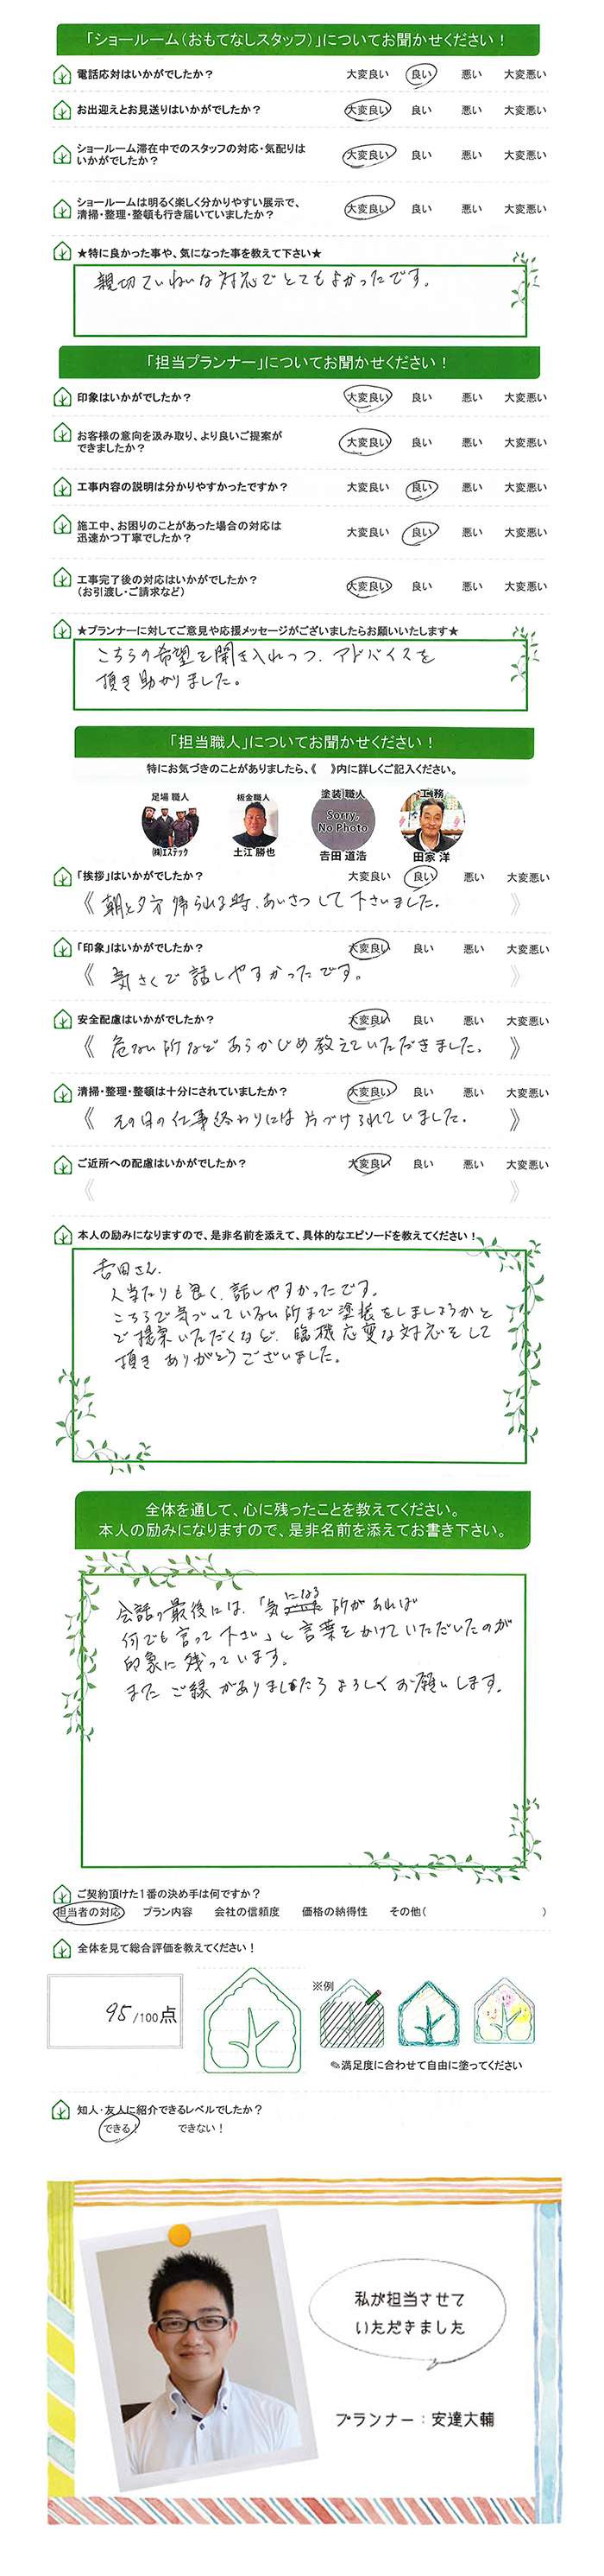 「ショールーム（おもてなしスタッフ）」についてお聞かせください！
電話応対はいかがでしたか？ 大変良い 良い 悪い 大変悪い
お出迎えとお見送りはいかがでしたか？ 大変良い 良い 悪い 大変悪い
ショールーム滞在中でのスタッフの対応・気配りは
いかがでしたか？ 大変良い 良い 悪い 大変悪い
ショールームは明るく楽しく分かりやすい展示で、
清掃・整理・整頓も行き届いていましたか？ 大変良い 良い 悪い 大変悪い
★特に良かった事や、気になった事を教えて下さい★
親切ていねいな対応でとてもよかったです。
「担当プランナー」についてお聞かせください！
印象はいかがでしたか？ 大変良い 良い 悪い 大変悪い
お客様の意向を汲み取り、より良いご提案が
できましたか？ 大変良い 良い 悪い 大変悪い
工事内容の説明は分かりやすかったですか？ 大変良い 良い 悪い 大変悪い
施工中、お困りのことがあった場合の対応は
迅速かつ丁寧でしたか？ 大変良い 良い 悪い 大変悪い
工事完了後の対応はいかがでしたか？
（お引渡し・ご請求など） 大変良い 良い 悪い 大変悪い
★プランナーに対してご意見や応援メッセージがございましたらお願いいたします★
こちらの希望を聞き入れつつ、アドバイスを
頂き助かりました。
「担当職人」についてお聞かせください！
特にお気づきのことがありましたら、《　》内に詳しくご記入ください。
足場 職人 板金職人 塗装 職人 工務
Sorry,
No Photo
㈱エステック 土江 勝也 吉田 道浩 田家 洋
「挨拶」はいかがでしたか？ 大変良い 良い 悪い 大変悪い
《 朝と夕方 帰られる時、あいさつして下さいました。 》
「印象」はいかがでしたか？ 大変良い 良い 悪い 大変悪い
《 気さくで話しやすかったです。 》
安全配慮はいかがでしたか？ 大変良い 良い 悪い 大変悪い
《 危ない所など あらかじめ教えていただきました。 》
清掃・整理・整頓は十分にされていましたか？ 大変良い 良い 悪い 大変悪い
《 その日の仕事終わりには片づけられていました。 》
ご近所への配慮はいかがでしたか？ 大変良い 良い 悪い 大変悪い
《 》
本人の励みになりますので、是非名前を添えて、具体的なエピソードを教えてください！
吉田さん、
人当たりも良く、話しやすかったです。
こちらで気づいていない所まで塗装をしましょうかと
ご提案いただくなど、臨機応変な対応をして
頂き ありがとうございました。
全体を通して、心に残ったことを教えてください。
本人の励みになりますので、是非名前を添えてお書き下さい。
会話の最後には、「気になる所があれば
何でも言って下さい」と言葉をかけていただいたのが
印象に残っています。
また ご縁がありましたらよろしくお願いします。
ご契約頂けた1番の決め手は何ですか？
担当者の対応 プラン内容 会社の信頼度 価格の納得性 その他（ ）
全体を見て総合評価を教えてください！
95/100点
※例
✎満足度に合わせて自由に塗ってください
知人・友人に紹介できるレベルでしたか？
できる！ できない！
私が担当させて
いただきました
プランナー：安達大輔